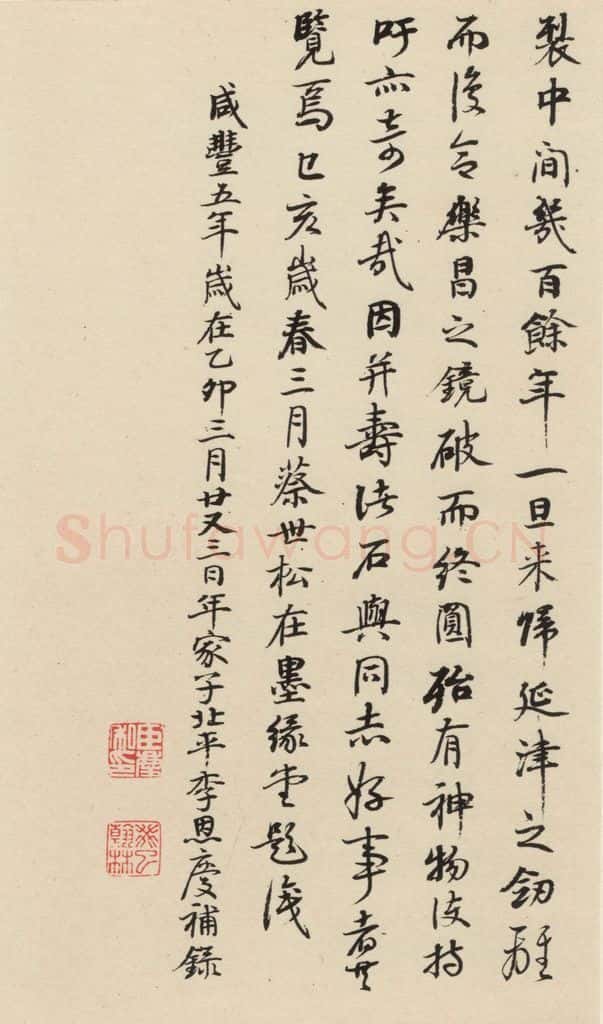 裂中間幾百餘年一旦来歸延津之劒離
而復合樂昌之鏡破而終圓殆有神物護持
吁亦奇矣哉因并壽諸石與同志好事者共
覽焉己亥歲春三月蔡世松在墨緣堂題識
咸豐五年歲在乙卯三月廿又三日年家子北平李恩慶補錄
Shufawang.CN